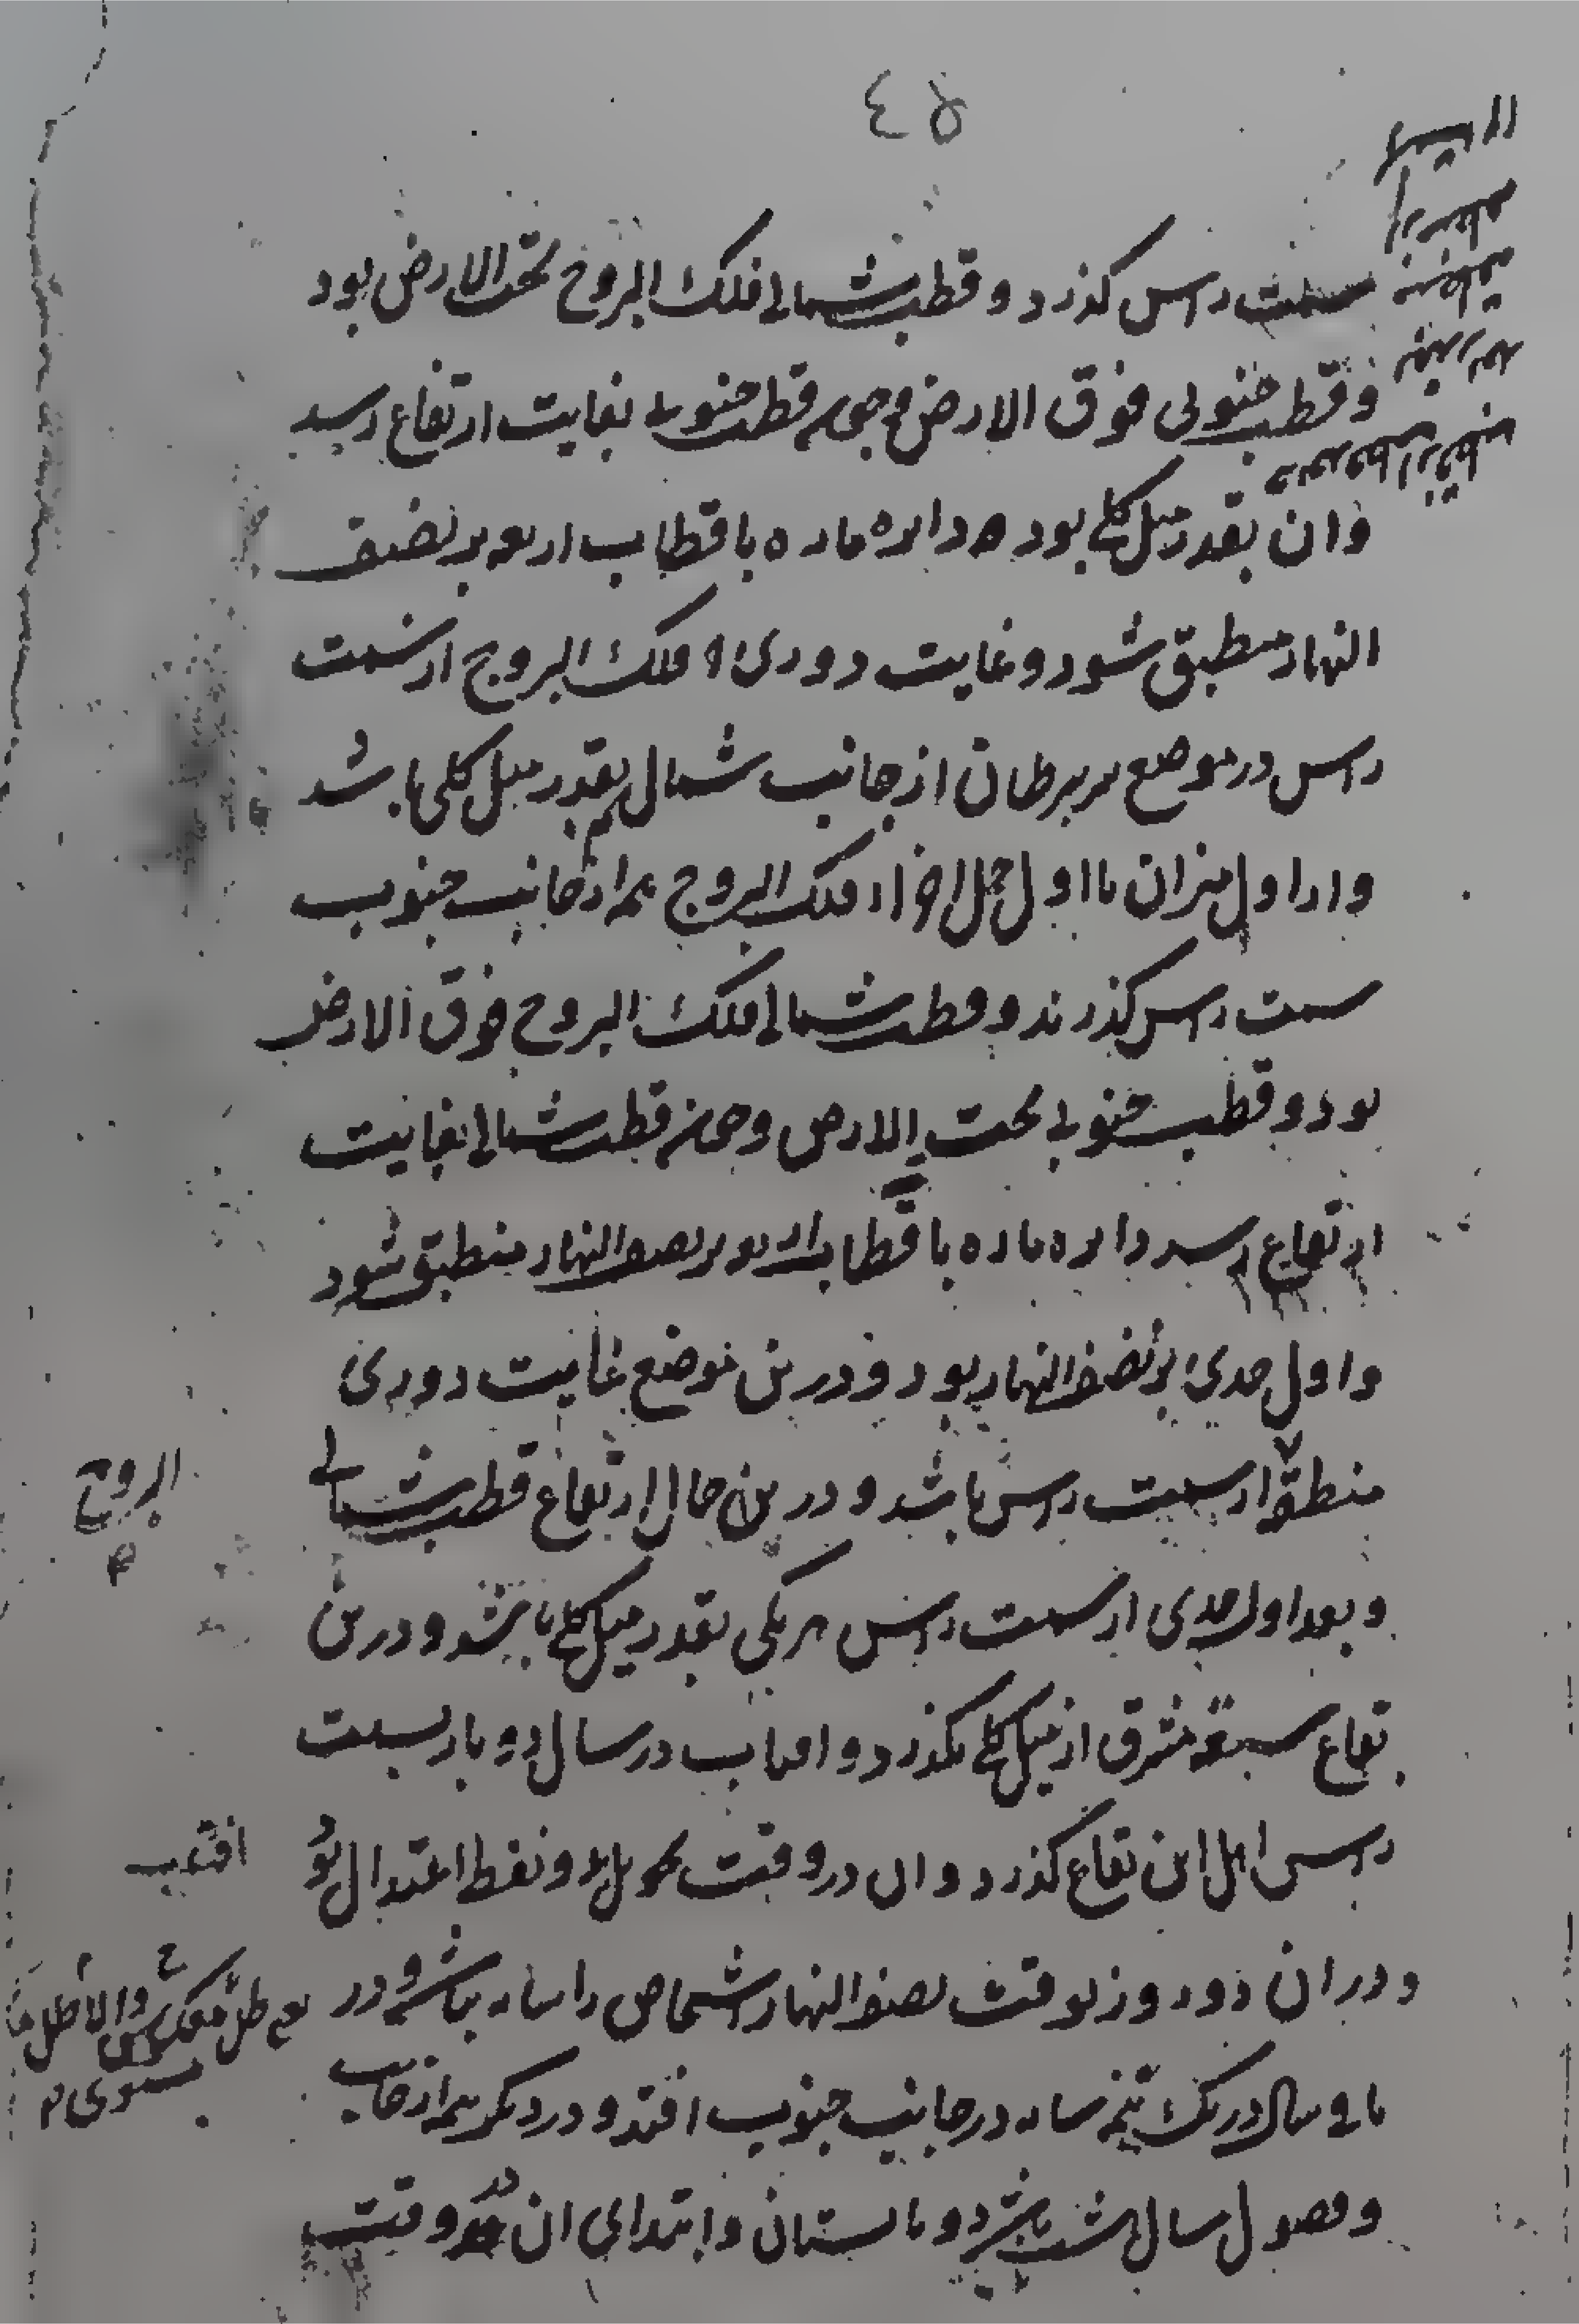 ٤٥
سمت راس کذرد و قطب شمالی فلک البروج تحت الارض بود
و قطب جنوبی فوق الارض و چون قطب جنوبی بغایت ارتفاع رسد
و ان بقدر میل کلی بود دایره ماره باقطاب اربعه بر نصف
النهار منطبق شود و غایت دوری فلک البروج از سمت
راس در موضع سر سرطان از جانب شمال بقدر میل کلی باشد
و از اول میزان تا اول حمل اجزا فلک البروج همه از جانب جنوب
سمت راس کذرند و قطب شمالی فلک البروج فوق الارض
بود و قطب جنوبی تحت الارض و چون قطب شمالی بغایت
ارتفاع رسد دایره ماره باقطاب اربعه بر نصف النهار منطبق شود
و اول جدی بر نصف النهار بود و درین موضع غایت دوری
منطقة از سمت راس باشد و درین حال ارتفاع قطب شمالی
البروج
و بعد اول جدی از سمت راس هر یکی بقدر میل کلی باشد و درین
بقاع سعة مشرق از میل کلی نکذرد و افتاب در سال دو بار بسمت
راس اهل این بقاع کذرد و ان در وقت تحویل او بدو نقطه اعتدال بود
افتاب
و در ان دو روز بوقت نصف النهار اشخاص را سایه نباشد و در
یعنی ظل معکوس والا ظل
مستوی
باقی سال در یک نیمه سایه در جانب جنوب افتد و در دیکر نیمه از جانب
و فصول سال هشت باشد دو تابستان و ابتدای ان در وقت